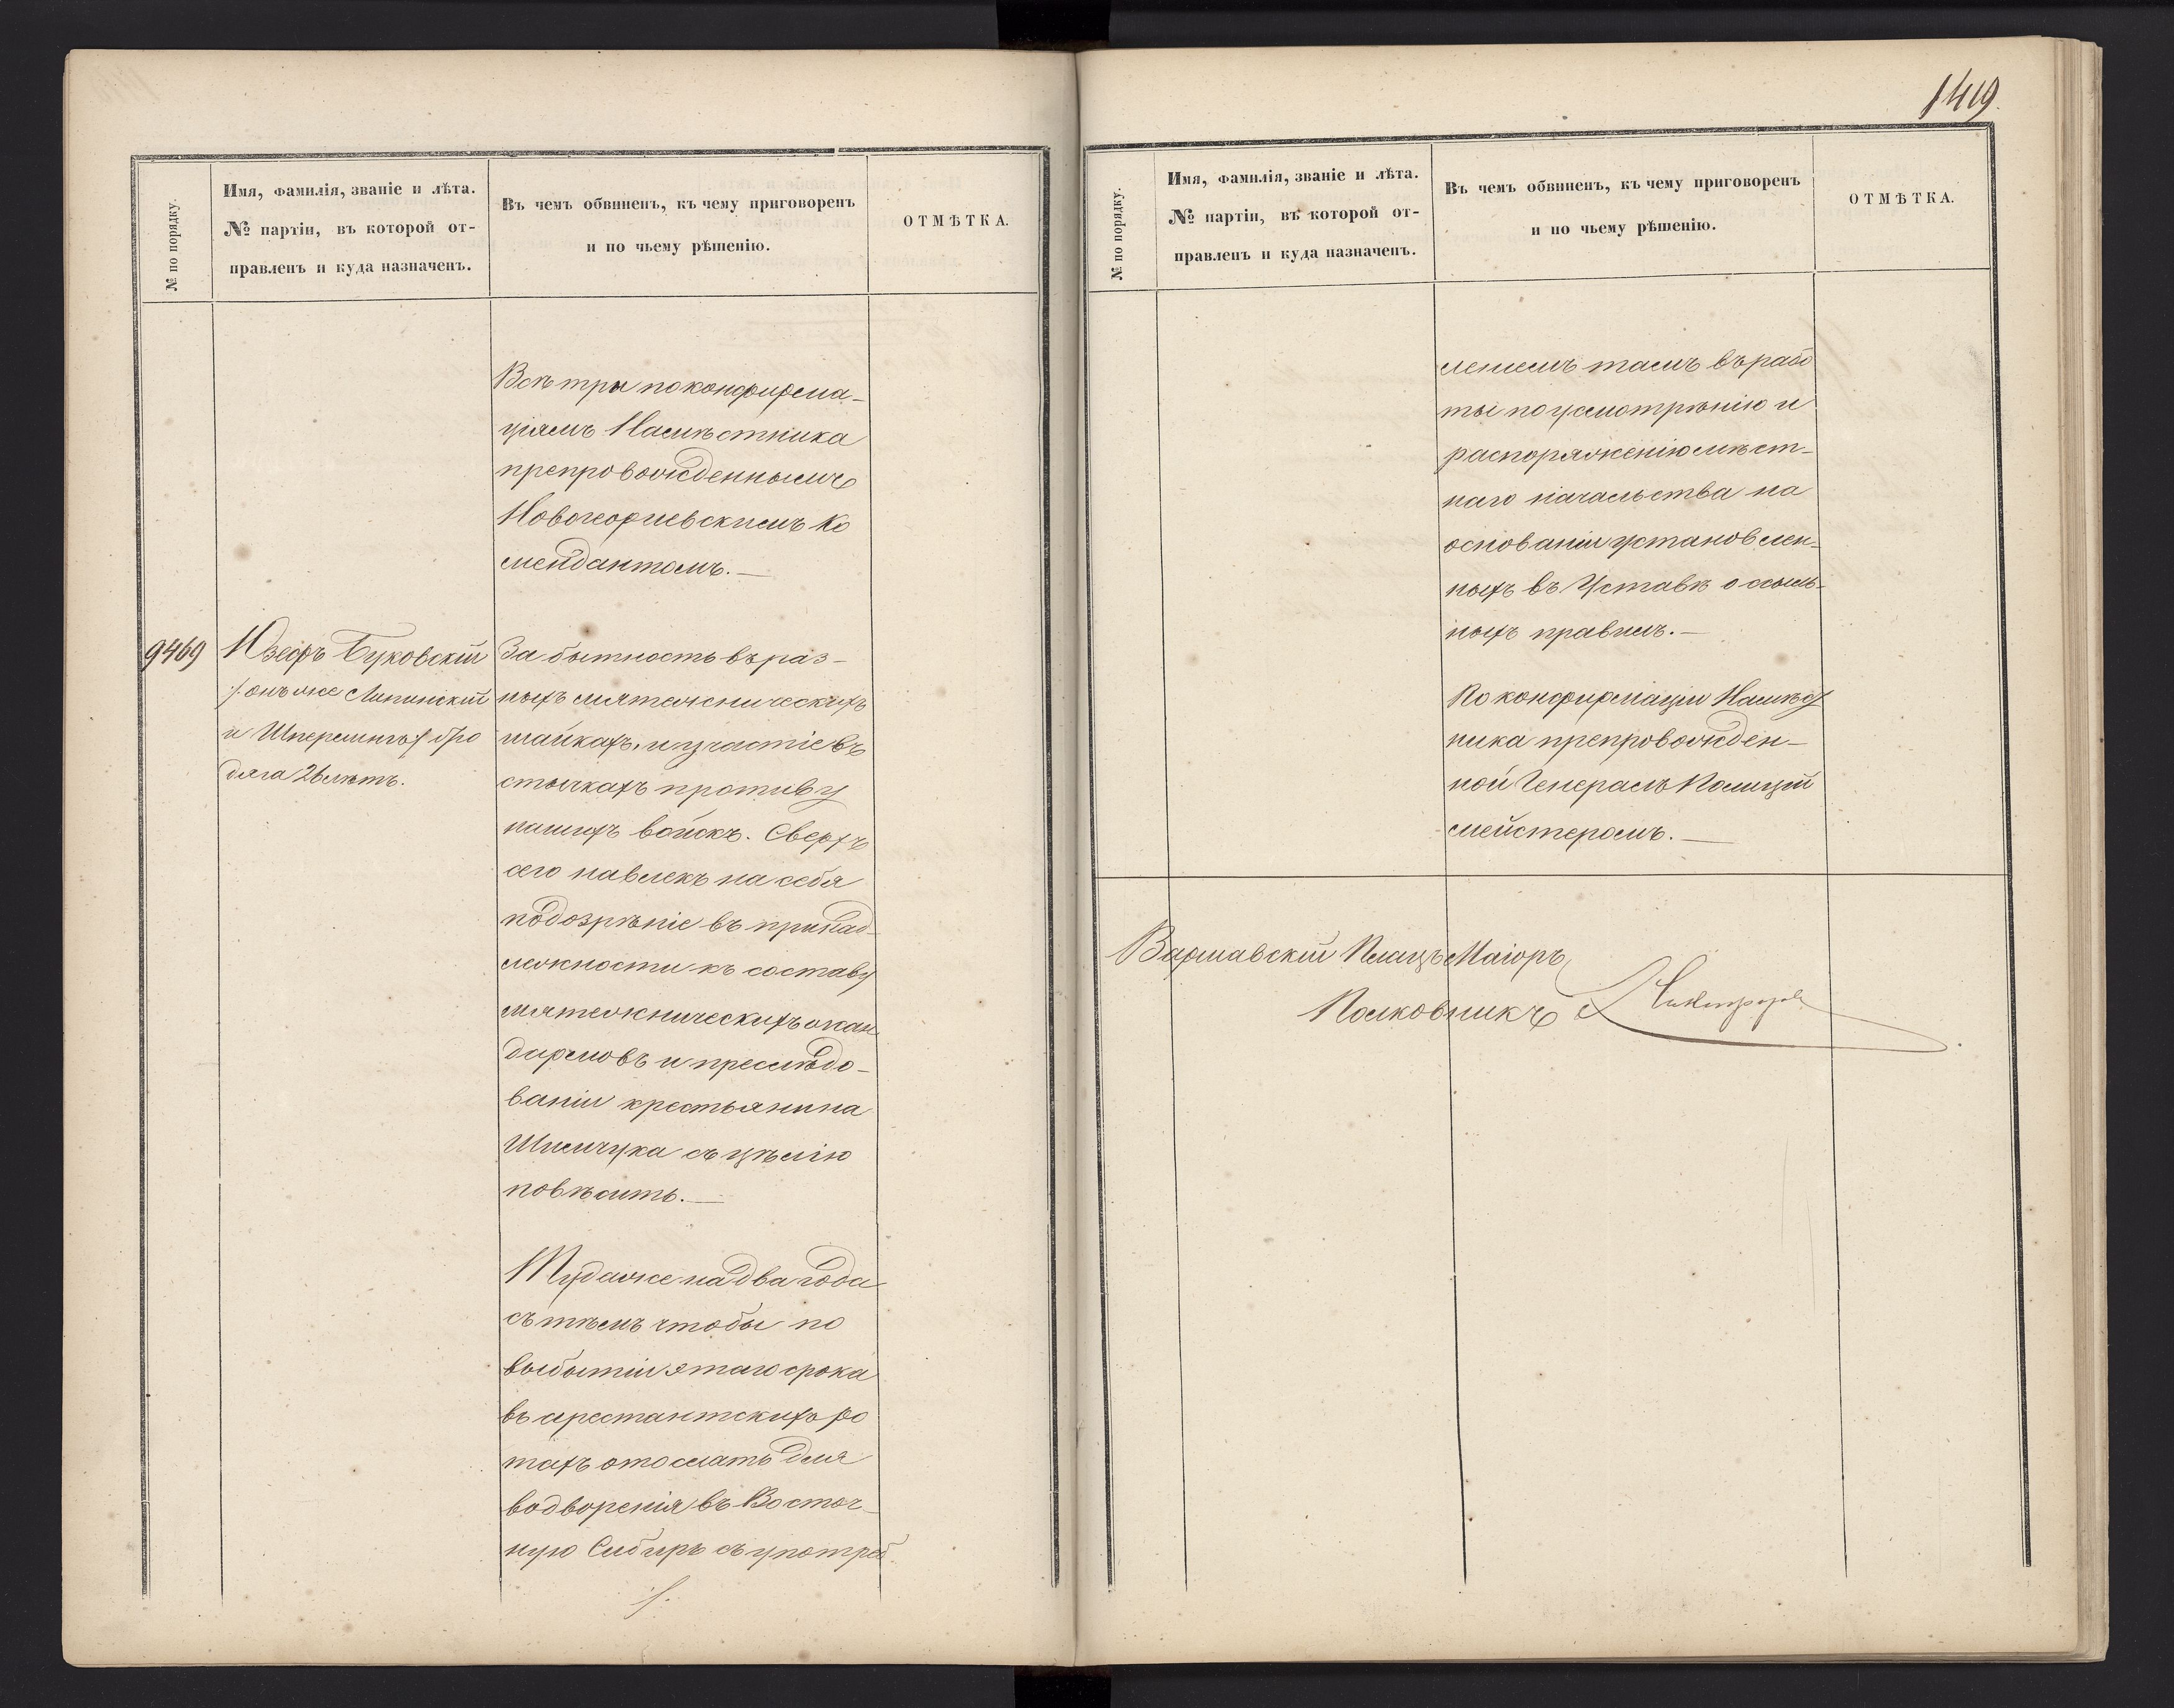 1419.
№ по порядку.
Имя, фамилія, званіе и лѣта.
№ партіи, въ которой от-
правленъ и куда назначенъ.
Въ чемъ обвиненъ, къ чему приговоренъ
и по чьему рѣшенію.
ОТМѢТКА.
Всѣ три по конфирма-
ціямъ Намѣстника
препровожденнымъ
Новогеоргиевскимъ Ко
мендантомъ.—
9469
Юзефъ Буковскій
/: онъ же Липинскій
и Шперлингъ :/ бро
дяга 26 лѣтъ.
За бытность въ раз-
ныхъ мятежническихъ
шайкахъ, и участіе въ
стычкахъ противу
нашихъ войскъ. Сверхъ
сего навлекъ на себя
подозрѣніе въ принад-
лежности къ составу
мятежническихъ жан
дармовъ и преслѣдо-
ваніи крестьянина
Шимчука съ цѣлію
повѣсить.—
Туда же на два года
съ тѣмъ чтобы по
выбытіи этаго срока
въ арестантскихъ ро
тахъ отослать для
водворенія въ Восточ-
ную Сибирь съ употреб
/.
№ по порядку.
Имя, фамилія, званіе и лѣта.
№ партіи, въ которой от-
правленъ и куда назначенъ.
Въ чемъ обвиненъ, къ чему приговоренъ
и по чьему рѣшенію.
ОТМѢТКА.
леніемъ тамъ въ рабо
ты по усмотрѣнію и
распоряженію мѣст-
наго начальства на
основаніи установлен-
ныхъ въ Уставѣ о ссыль-
ныхъ правилъ.—
По конфирмаціи Намѣст
ника препровожден-
ной Генералъ Полицій
мейстеромъ.—
Варшавскій Плацъ Маіоръ,
Полковникъ